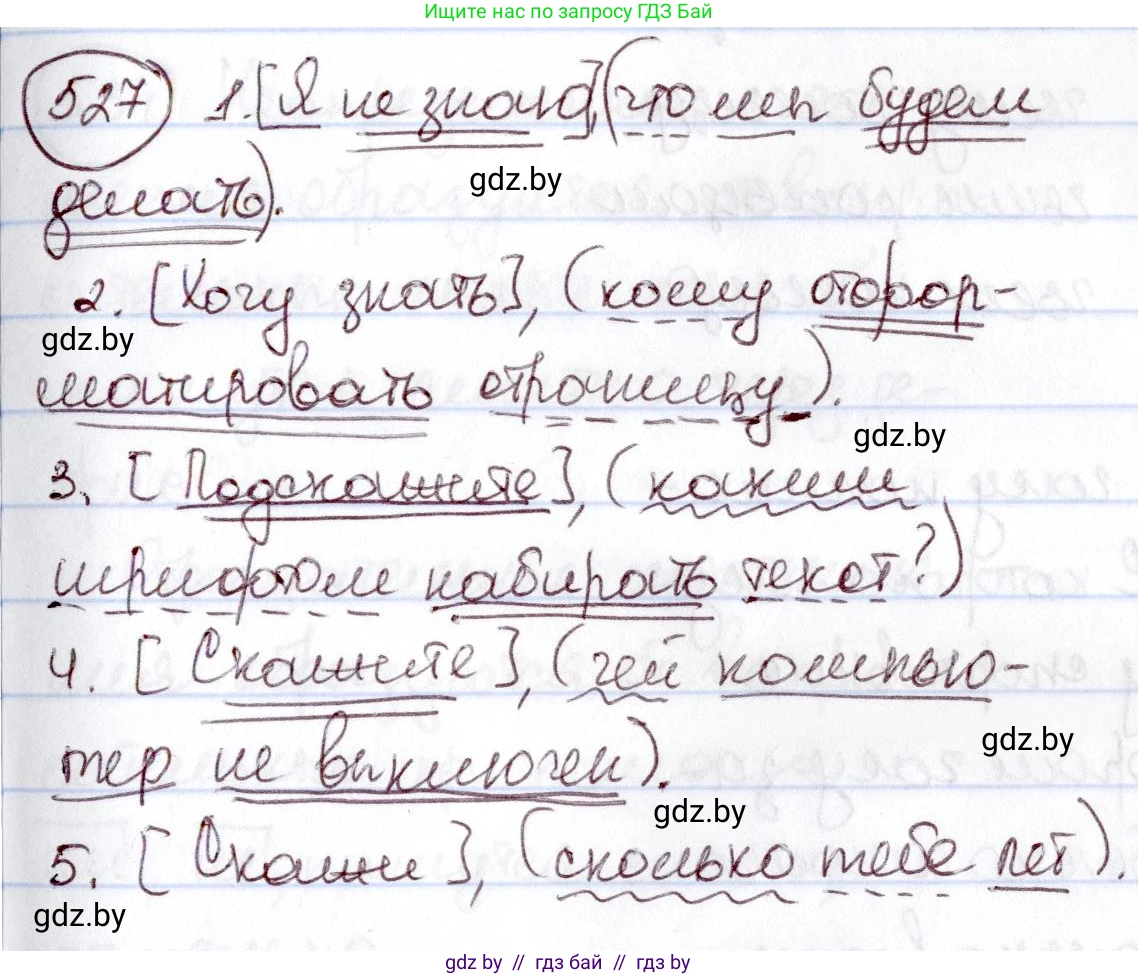 Ищите нас по запросу ГДЗ Бай
527 1. [Я не знаю], (что мы будем
gdz.by
делать).
2. [Хочу знать], (кому отфор-
gdz.by
матировать страницу).
gdz.by
3. [Подскажите], (каким
шрифтом набирать текст?)
4. [Скажите], (чей компью-
gdz.by
тер не выключен).
gdz.by
5. [Скажи], (сколько тебе лет).
gdz.by
gdz by // гдз бай // гдз by